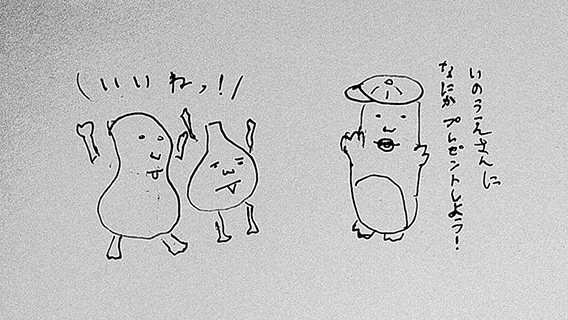 いのうえさんに
なにか プレゼントしよう！
\いいねっ！/